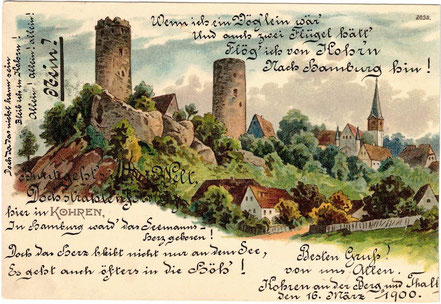 Wenn ich ein Vög'lein wär'
Und auch zwei Flügel hätt'
Flög' ich von Kohrn
Nach Hamburg hin!
2658.
Doch da das nicht kann sein
Bleib ich in Kohrn!
Allein! allein! allein!
Nein!
geht
Welt,
Doch
hier in KOHREN,
In Hamburg ward' das Seemanns-
herz geboren!
Doch das Herz bleibt nicht nur an dem See,
Es geht auch öfters in die Höh'!
Besten Gruß
von uns Allen.
Kohren an der Berg und Thall
den 16. März 1900.